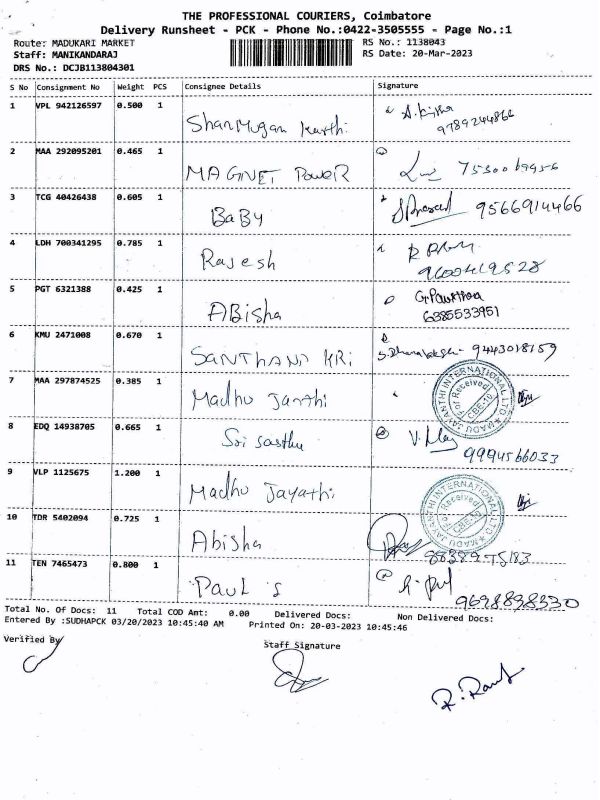 THE PROFESSIONAL COURIERS, Coimbatore
Delivery Runsheet - PCK - Phone No.:0422-3505555 - Page No.:1
Route: MADUKARI MARKET RS No.: 1138043
Staff: MANIKANDARAJ RS Date: 20-Mar-2023
DRS No.: DCJB113804301
S No Consignment No Weight PCS Consignee Details Signature
1 VPL 942126597 0.500 1 Shanmugan Karthi 9789244866
2 MAA 292095201 0.465 1 MAGNET PoweR
3 TCG 40426438 0.605 1 BaBy S Prasad 9566914466
4 LDH 700341295 0.785 1 Rajesh
5 PGT 6321388 0.425 1 ABisha 6385533951
6 KMU 2471008 0.670 1 SANTHANA KRi 9443018159
7 MAA 297874525 0.385 1 Madhu Janthi
MADU JAYANTHI INTERNATIONAL LTD
for Received
CBE-10
8 EDQ 14938705 0.665 1 Sri sastha 9994566033
9 VLP 1125675 1.200 1 Madhu Jayathi
MADU JAYANTHI INTERNATIONAL LTD
for Received
CBE-10
10 TDR 5402094 0.725 1 Abisha
11 TEN 7465473 0.800 1 Paul s 9698898330
Total No. Of Docs: 11 Total COD Amt: 0.00 Delivered Docs: Non Delivered Docs:
Entered By :SUDHAPCK 03/20/2023 10:45:40 AM Printed On: 20-03-2023 10:45:46
Verified By Staff Signature